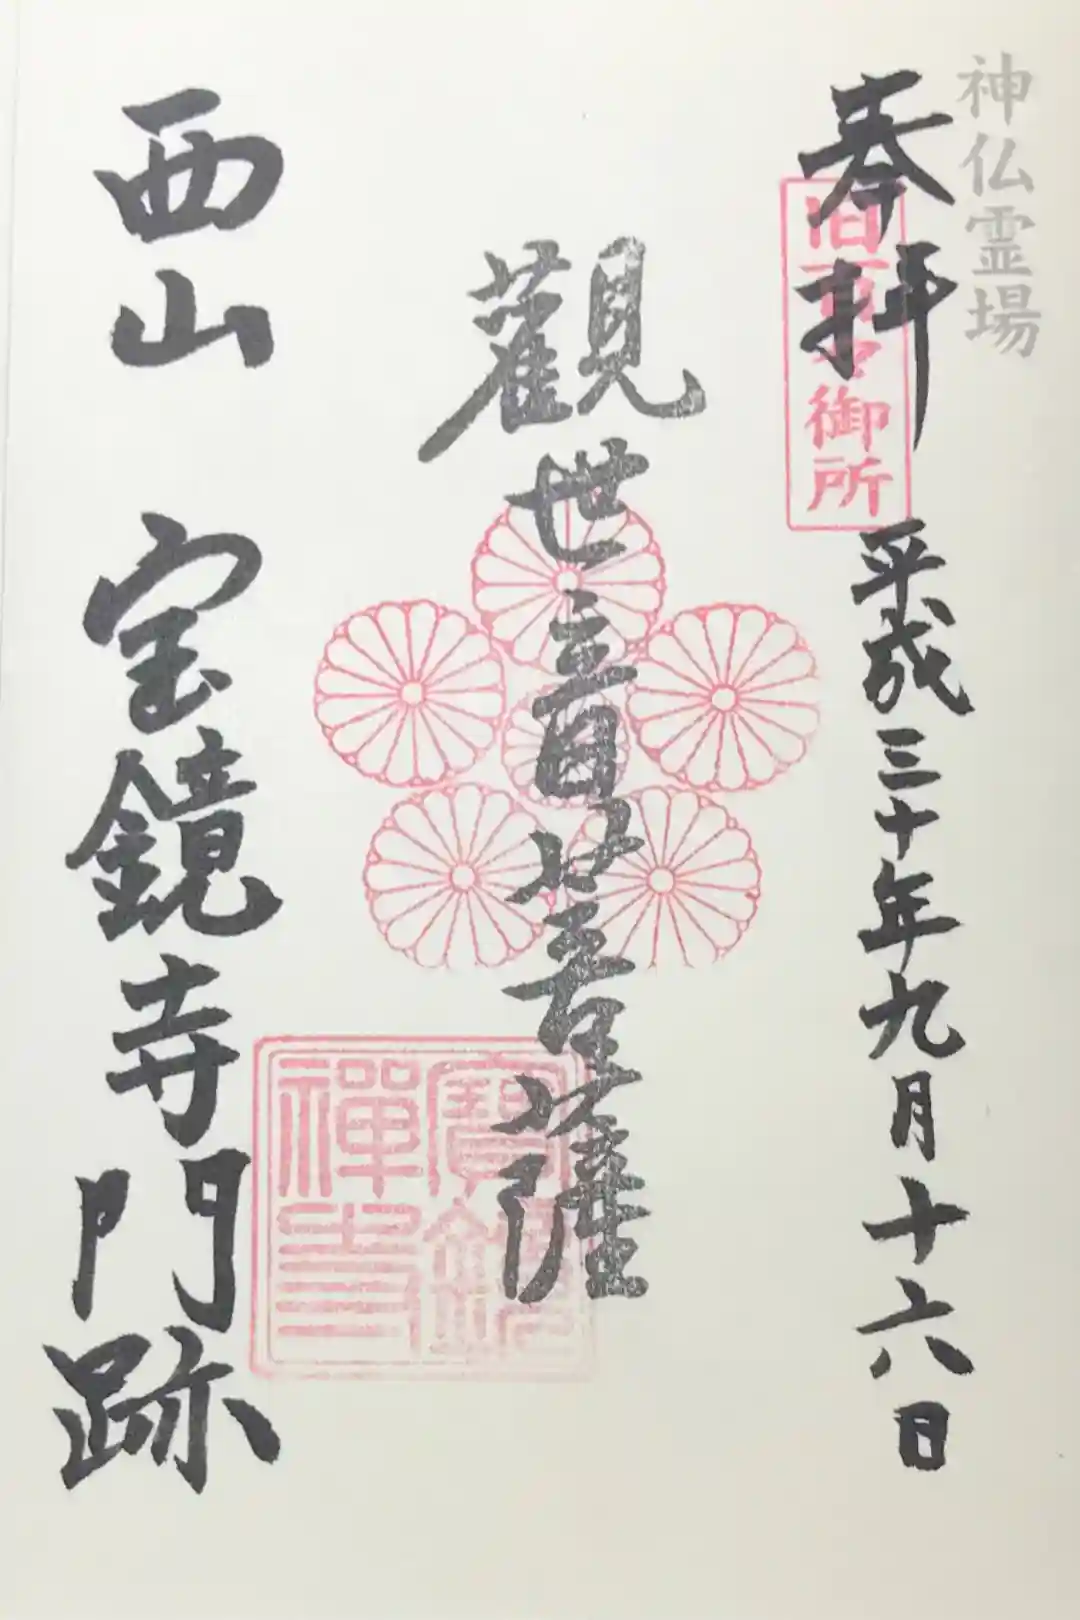 神仏霊場
奉拝 平成三十年九月十六日
旧百々御所
觀世音菩薩
寶鏡
禅寺
西山 宝鏡寺門跡